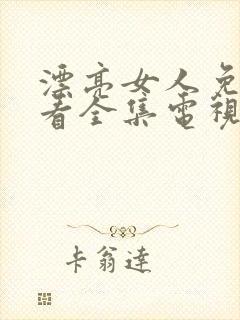 漂亮女人免
看全集電視
卡翁達